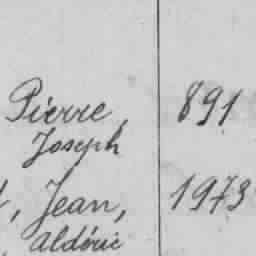 Pierre, 891
Joseph
, Jean, 1973
Aldéric